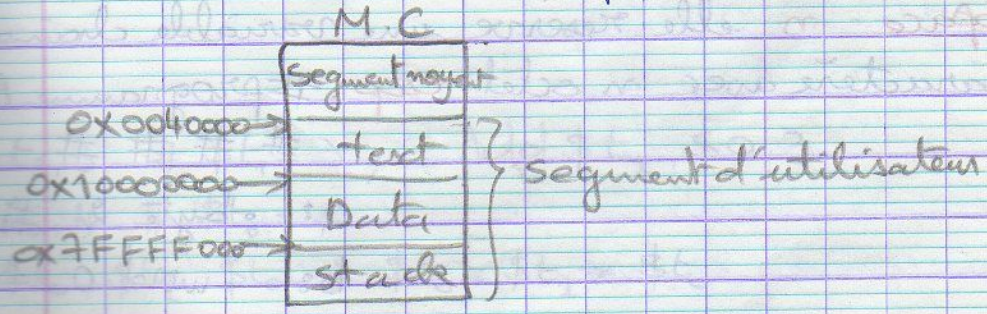 M.C
Segment noyau
0x0040000
text
0x10000000
Data
0x7FFFF000
stack
segment d'utilisateur